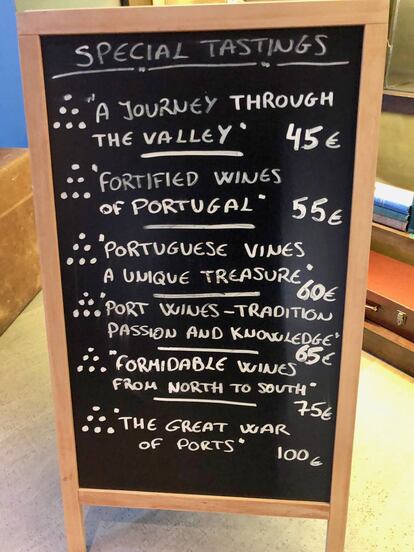 SPECIAL TASTINGS
"A JOURNEY THROUGH
THE VALLEY" 45€
"FORTIFIED WINES
OF PORTUGAL" 55€
"PORTUGUESE VINES
A UNIQUE TREASURE"
60€
"PORT WINES-TRADITION
PASSION AND KNOWLEDGE"
65€
"FORMIDABLE WINES
FROM NORTH TO SOUTH"
75€
"THE GREAT WAR
OF PORTS" 100€